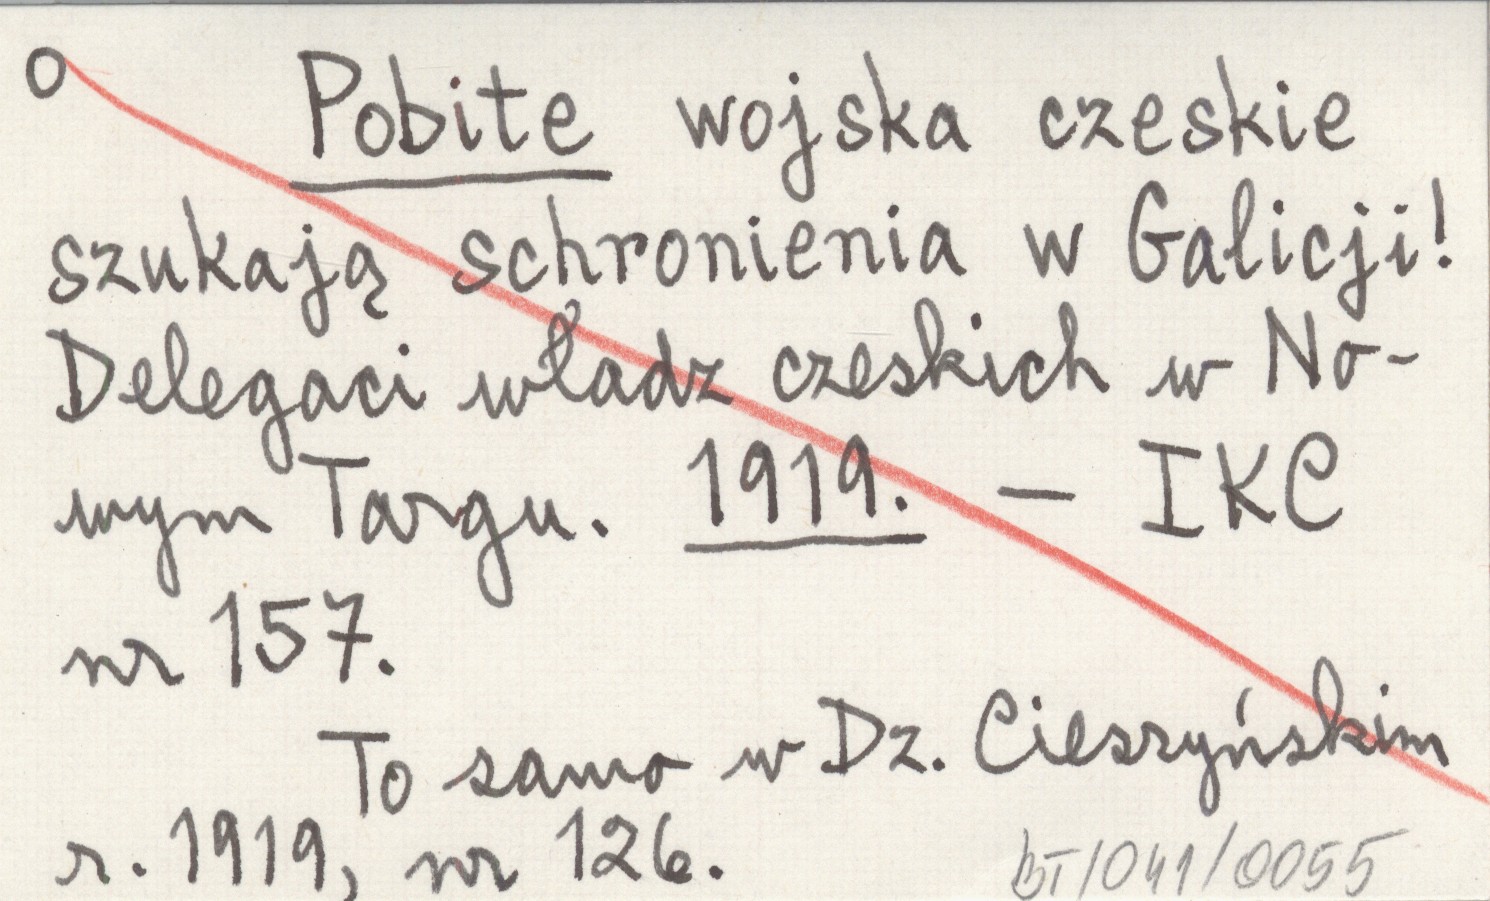 O Pobite wojska czeskie
szukają schronienia w Galicji!
Delegaci władz czeskich w No-
wym Targu. 1919. — IKC
nr 157.
To samo w Dz. Cieszyńskim
r. 1919, nr 126.
BT/041/0055